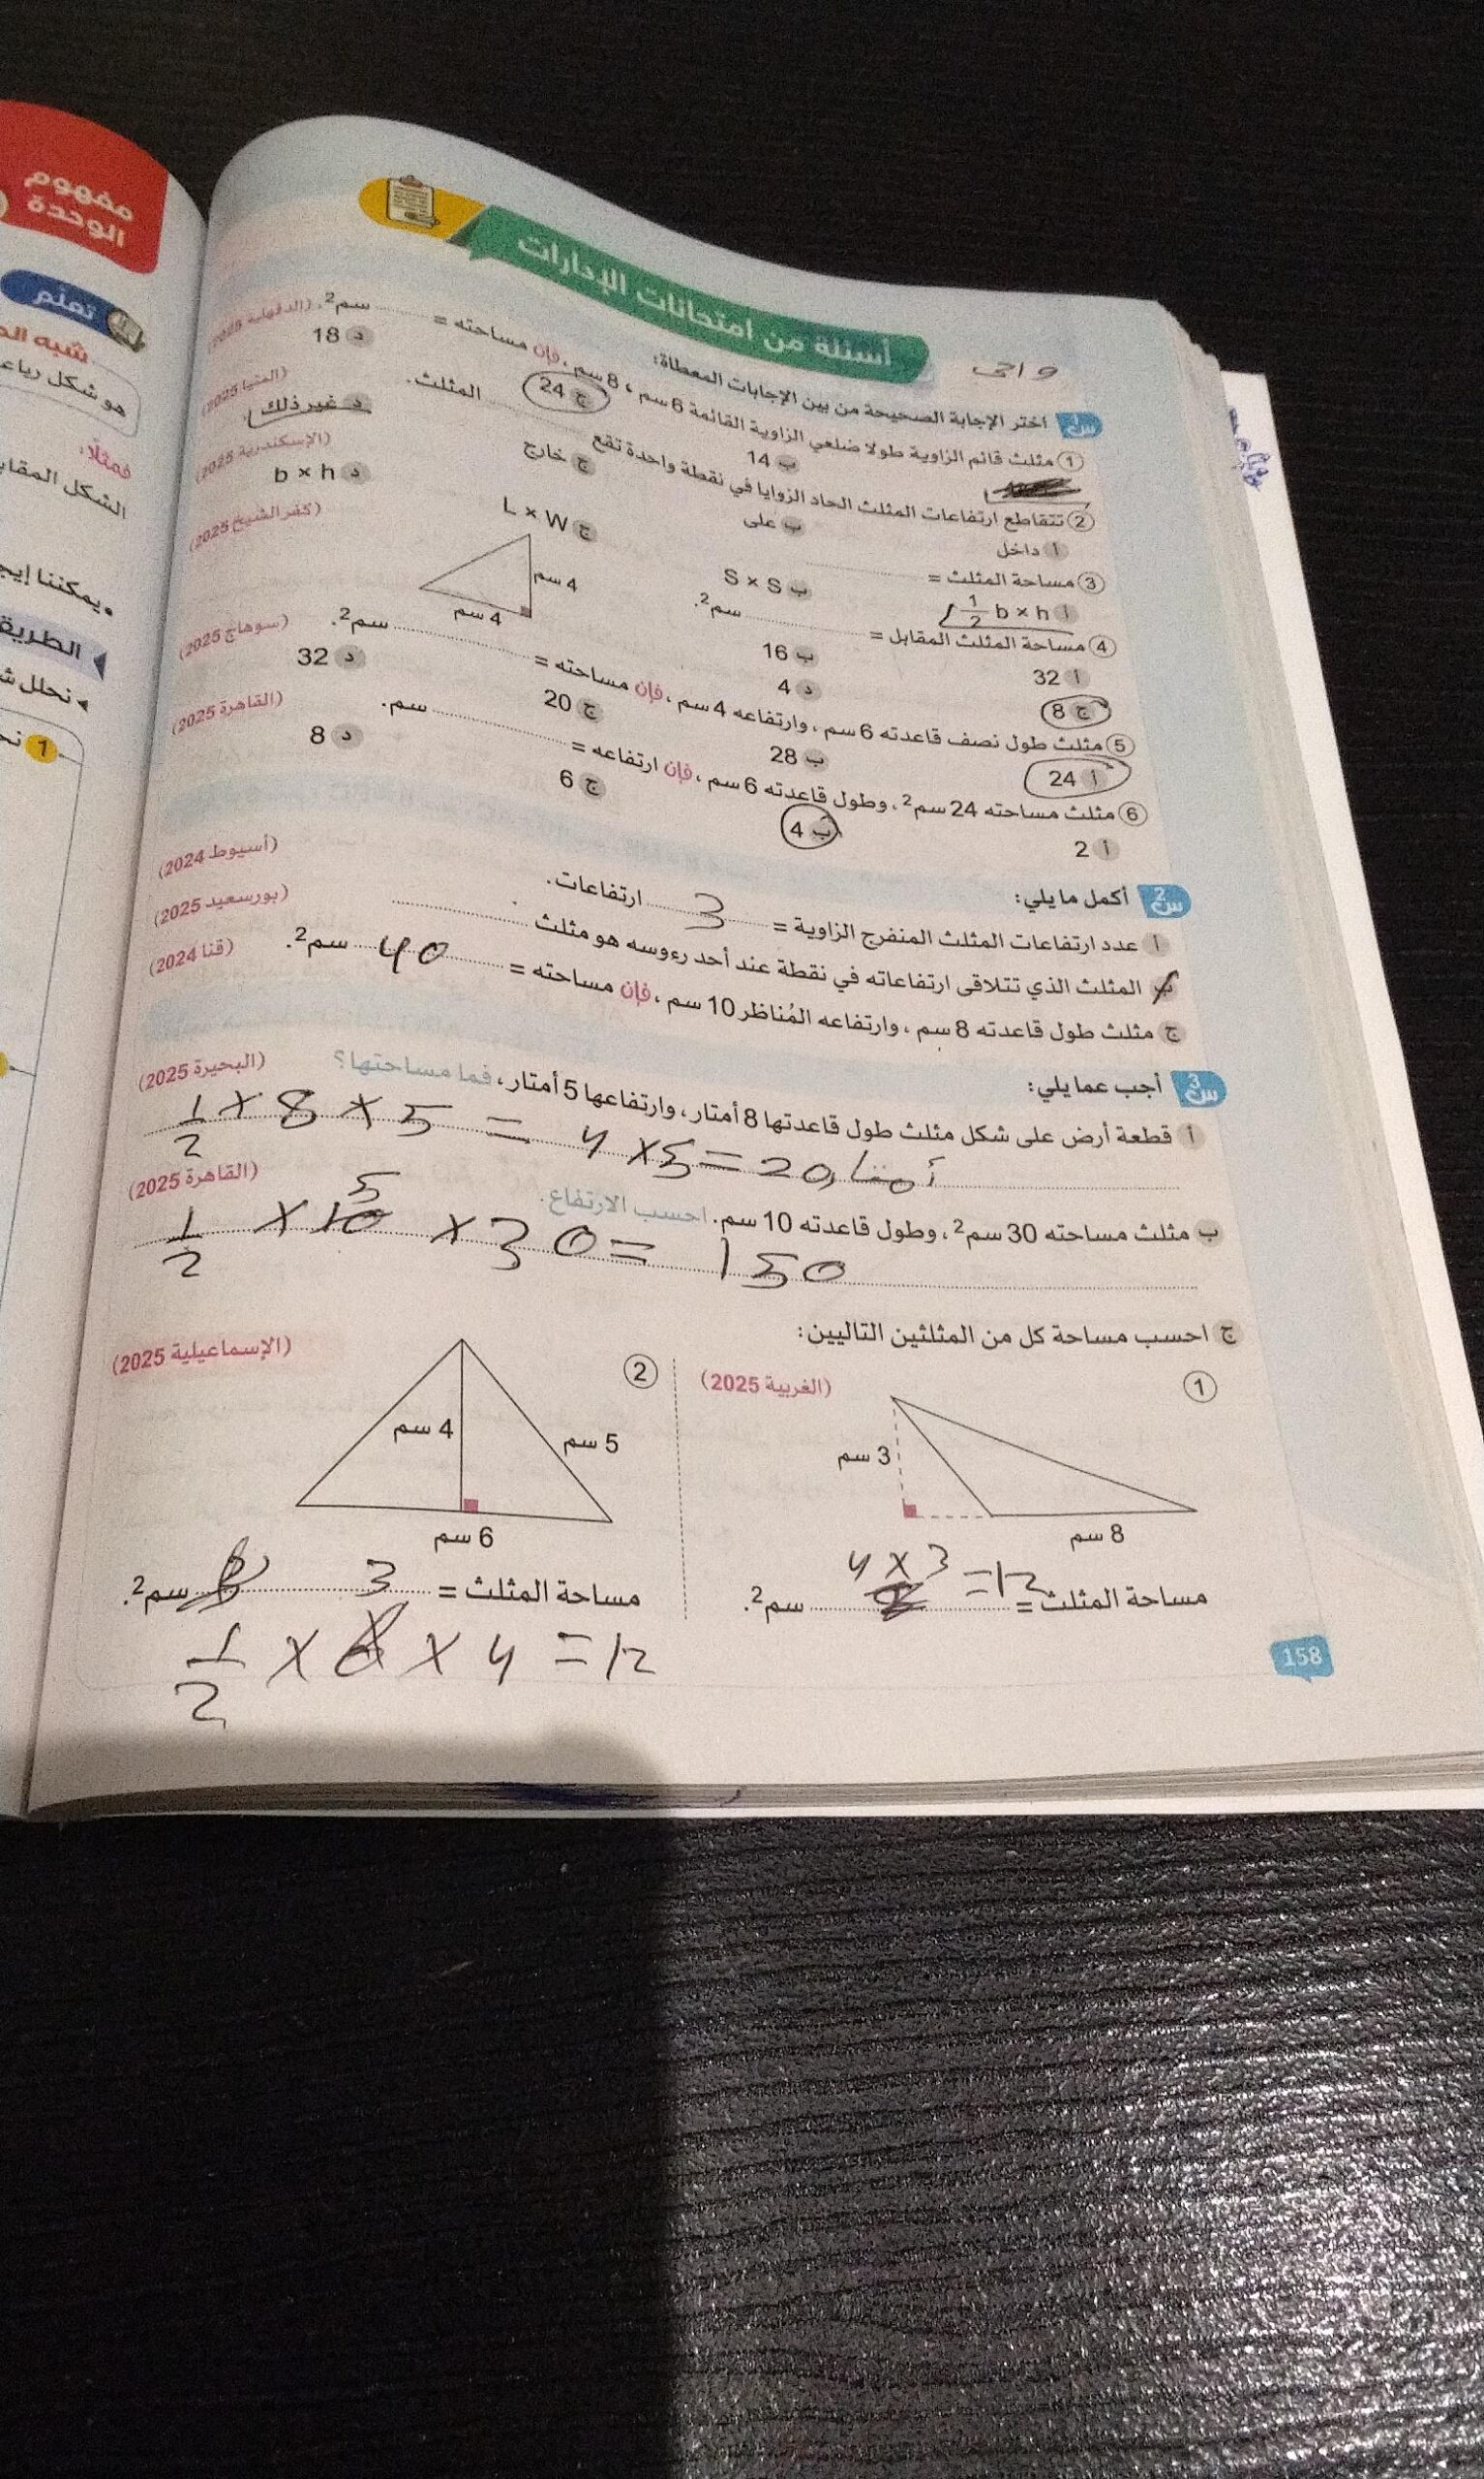 مفهوم
الوحدة
تعلم
هو شكل رباع
فمثلًا:
الشكل المقا
• يمكننا إيج
الطريق
نحلل ش
1 نح
أسئلة من امتحانات الإدارات
واجب
س1 اختر الإجابة الصحيحة من بين الإجابات المعطاة:
1 مثلث قائم الزاوية طولا ضلعي الزاوية القائمة 6 سم ، 8 سم ، فإن مساحته = ........ سم². (الدقهلية 2025)
ب 14 ج 24 د 18
2 تتقاطع ارتفاعات المثلث الحاد الزوايا في نقطة واحدة تقع ........ المثلث. (المنيا 2025)
أ داخل ب على ج خارج د غير ذلك
3 مساحة المثلث = ........ (الإسكندرية 2025)
أ 1/2 b × h ب S × S ج L × W د b × h
4 مساحة المثلث المقابل = ........ سم². (كفر الشيخ 2025)
4 سم
4 سم
أ 32 ب 16
ج 8 د 4
5 مثلث طول نصف قاعدته 6 سم ، وارتفاعه 4 سم ، فإن مساحته = ........ سم². (سوهاج 2025)
أ 24 ب 28 ج 20 د 32
6 مثلث مساحته 24 سم² ، وطول قاعدته 6 سم ، فإن ارتفاعه = ........ سم. (القاهرة 2025)
أ 2 ب 4 ج 6 د 8
س2 أكمل ما يلي:
أ عدد ارتفاعات المثلث المنفرج الزاوية = 3 ارتفاعات. (أسيوط 2024)
ب المثلث الذي تتلاقى ارتفاعاته في نقطة عند أحد رءوسه هو مثلث ........ (بورسعيد 2025)
ج مثلث طول قاعدته 8 سم ، وارتفاعه المُناظر 10 سم ، فإن مساحته = 40 سم². (قنا 2024)
س3 أجب عما يلي:
أ قطعة أرض على شكل مثلث طول قاعدتها 8 أمتار ، وارتفاعها 5 أمتار ، فما مساحتها؟ (البحيرة 2025)
1/2 × 8 × 5 = 4 × 5 = 20 أمتار
ب مثلث مساحته 30 سم² ، وطول قاعدته 10 سم. احسب الارتفاع. (القاهرة 2025)
5
1/2 × 10 × 30 = 150
ج احسب مساحة كل من المثلثين التاليين:
1 (الغربية 2025)
3 سم
8 سم
4 × 3 = 12
مساحة المثلث = ........ سم².
2 (الإسماعيلية 2025)
4 سم
5 سم
6 سم
مساحة المثلث = ........ سم².
3
1/2 × 6 × 4 = 12
158